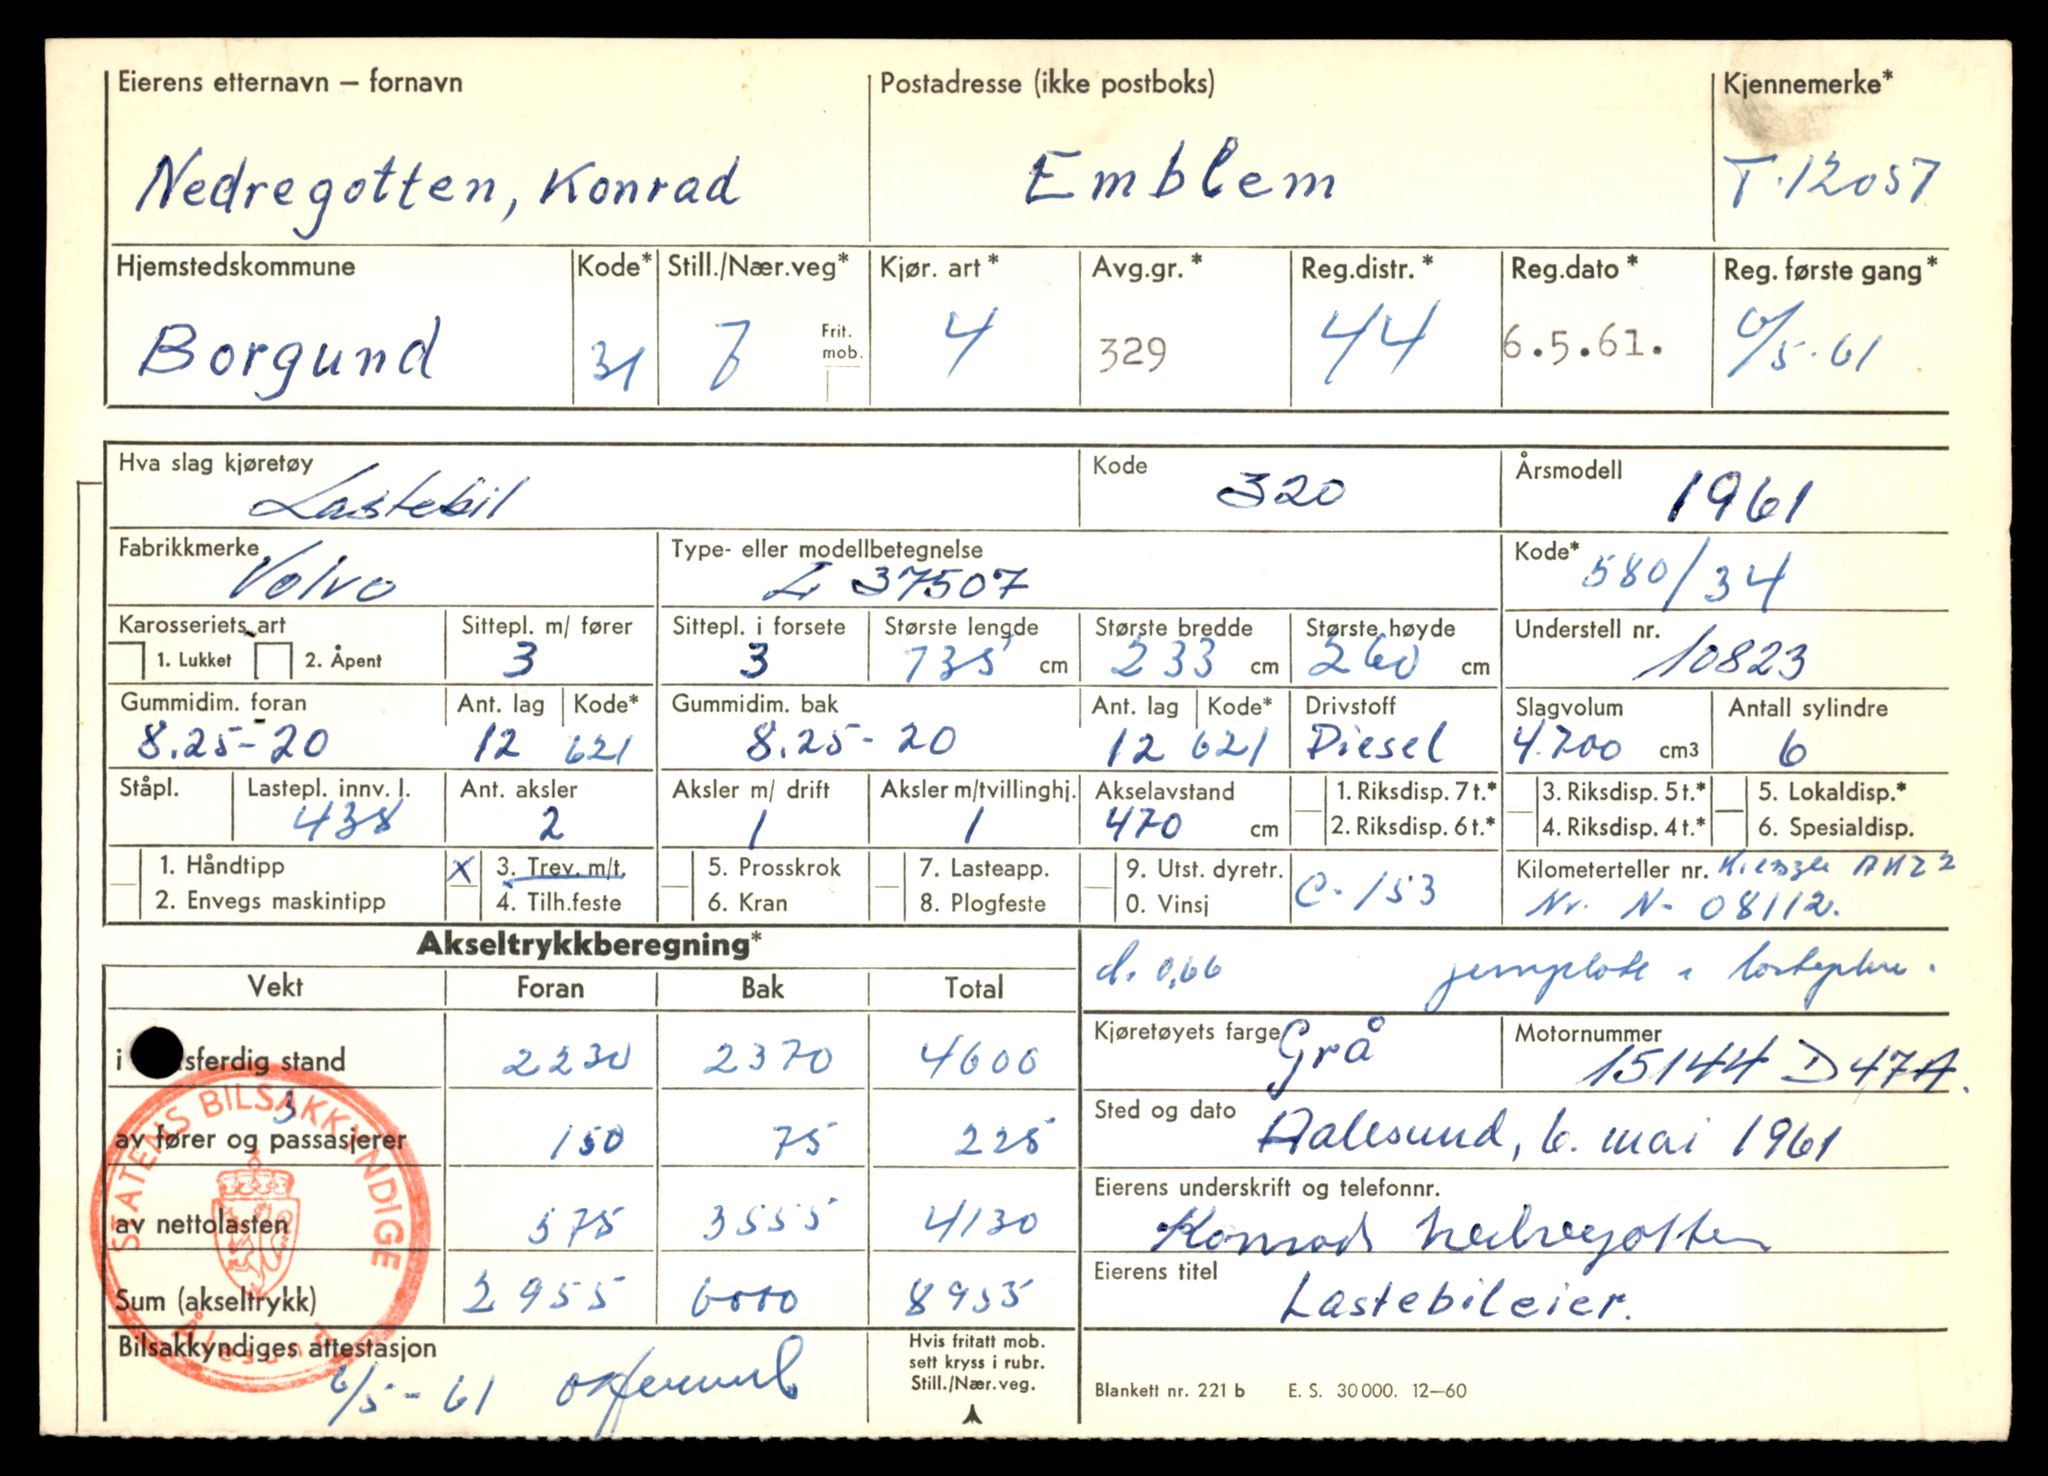 Eierens etternavn — fornavn Postadresse (ikke postboks) Kjennemerke*
Nedregotten, Konrad Emblem T-12057
Hjemstedskommune Kode* Still./Nær.veg* Kjør. art* Avg.gr.* Reg.distr.* Reg.dato* Reg. første gang*
Borgund 31 7 Frit. mob. 4 329 44 6.5.61. 6/5-61
Hva slag kjøretøy Kode Årsmodell
Lastebil 320 1961
Fabrikkmerke Type- eller modellbetegnelse Kode*
Volvo L 37507 580/34
Karosseriets art Sittepl. m/ fører Sittepl. i forsete Største lengde Største bredde Største høyde Understell nr.
1. Lukket 2. Åpent 3 3 735 cm 233 cm 260 cm 10823
Gummidim. foran Ant. lag Kode* Gummidim. bak Ant. lag Kode* Drivstoff Slagvolum Antall sylindre
8.25-20 12 621 8.25-20 12 621 Diesel 4.700 cm3 6
Ståpl. Lastepl. innv. l. Ant. aksler Aksler m/ drift Aksler m/tvillinghj. Akselavstand 1. Riksdisp. 7 t.* 3. Riksdisp. 5 t.* 5. Lokaldisp.*
438 2 1 1 470 cm 2. Riksdisp. 6 t.* 4. Riksdisp. 4 t.* 6. Spesialdisp.
1. Håndtipp X 3. Trev. m/t. 5. Prosskrok 7. Lasteapp. 9. Utst. dyretr. C-153 Kilometerteller nr.
2. Envegs maskintipp 4. Tilh.feste 6. Kran 8. Plogfeste 0. Vinsj Nr. N- 08112.
Akseltrykkberegning* d. 0,66
Vekt Foran Bak Total
i sferdig stand 2230 2370 4600 Kjøretøyets farge Grå Motornummer 15144 D47A.
3
av fører og passasjerer 150 75 225 Sted og dato Aalesund, 6. mai 1961
av nettolasten 575 3555 4130 Eierens underskrift og telefonnr. Konrad Nedregotten
Sum (akseltrykk) 2955 6000 8955 Eierens titel Lastebileier.
Bilsakkyndiges attestasjon Hvis fritatt mob. sett kryss i rubr. Still./Nær.veg.
6/5-61
Blankett nr. 221 b E. S. 30 000. 12—60
STATENS BILSAKKYNDIGE